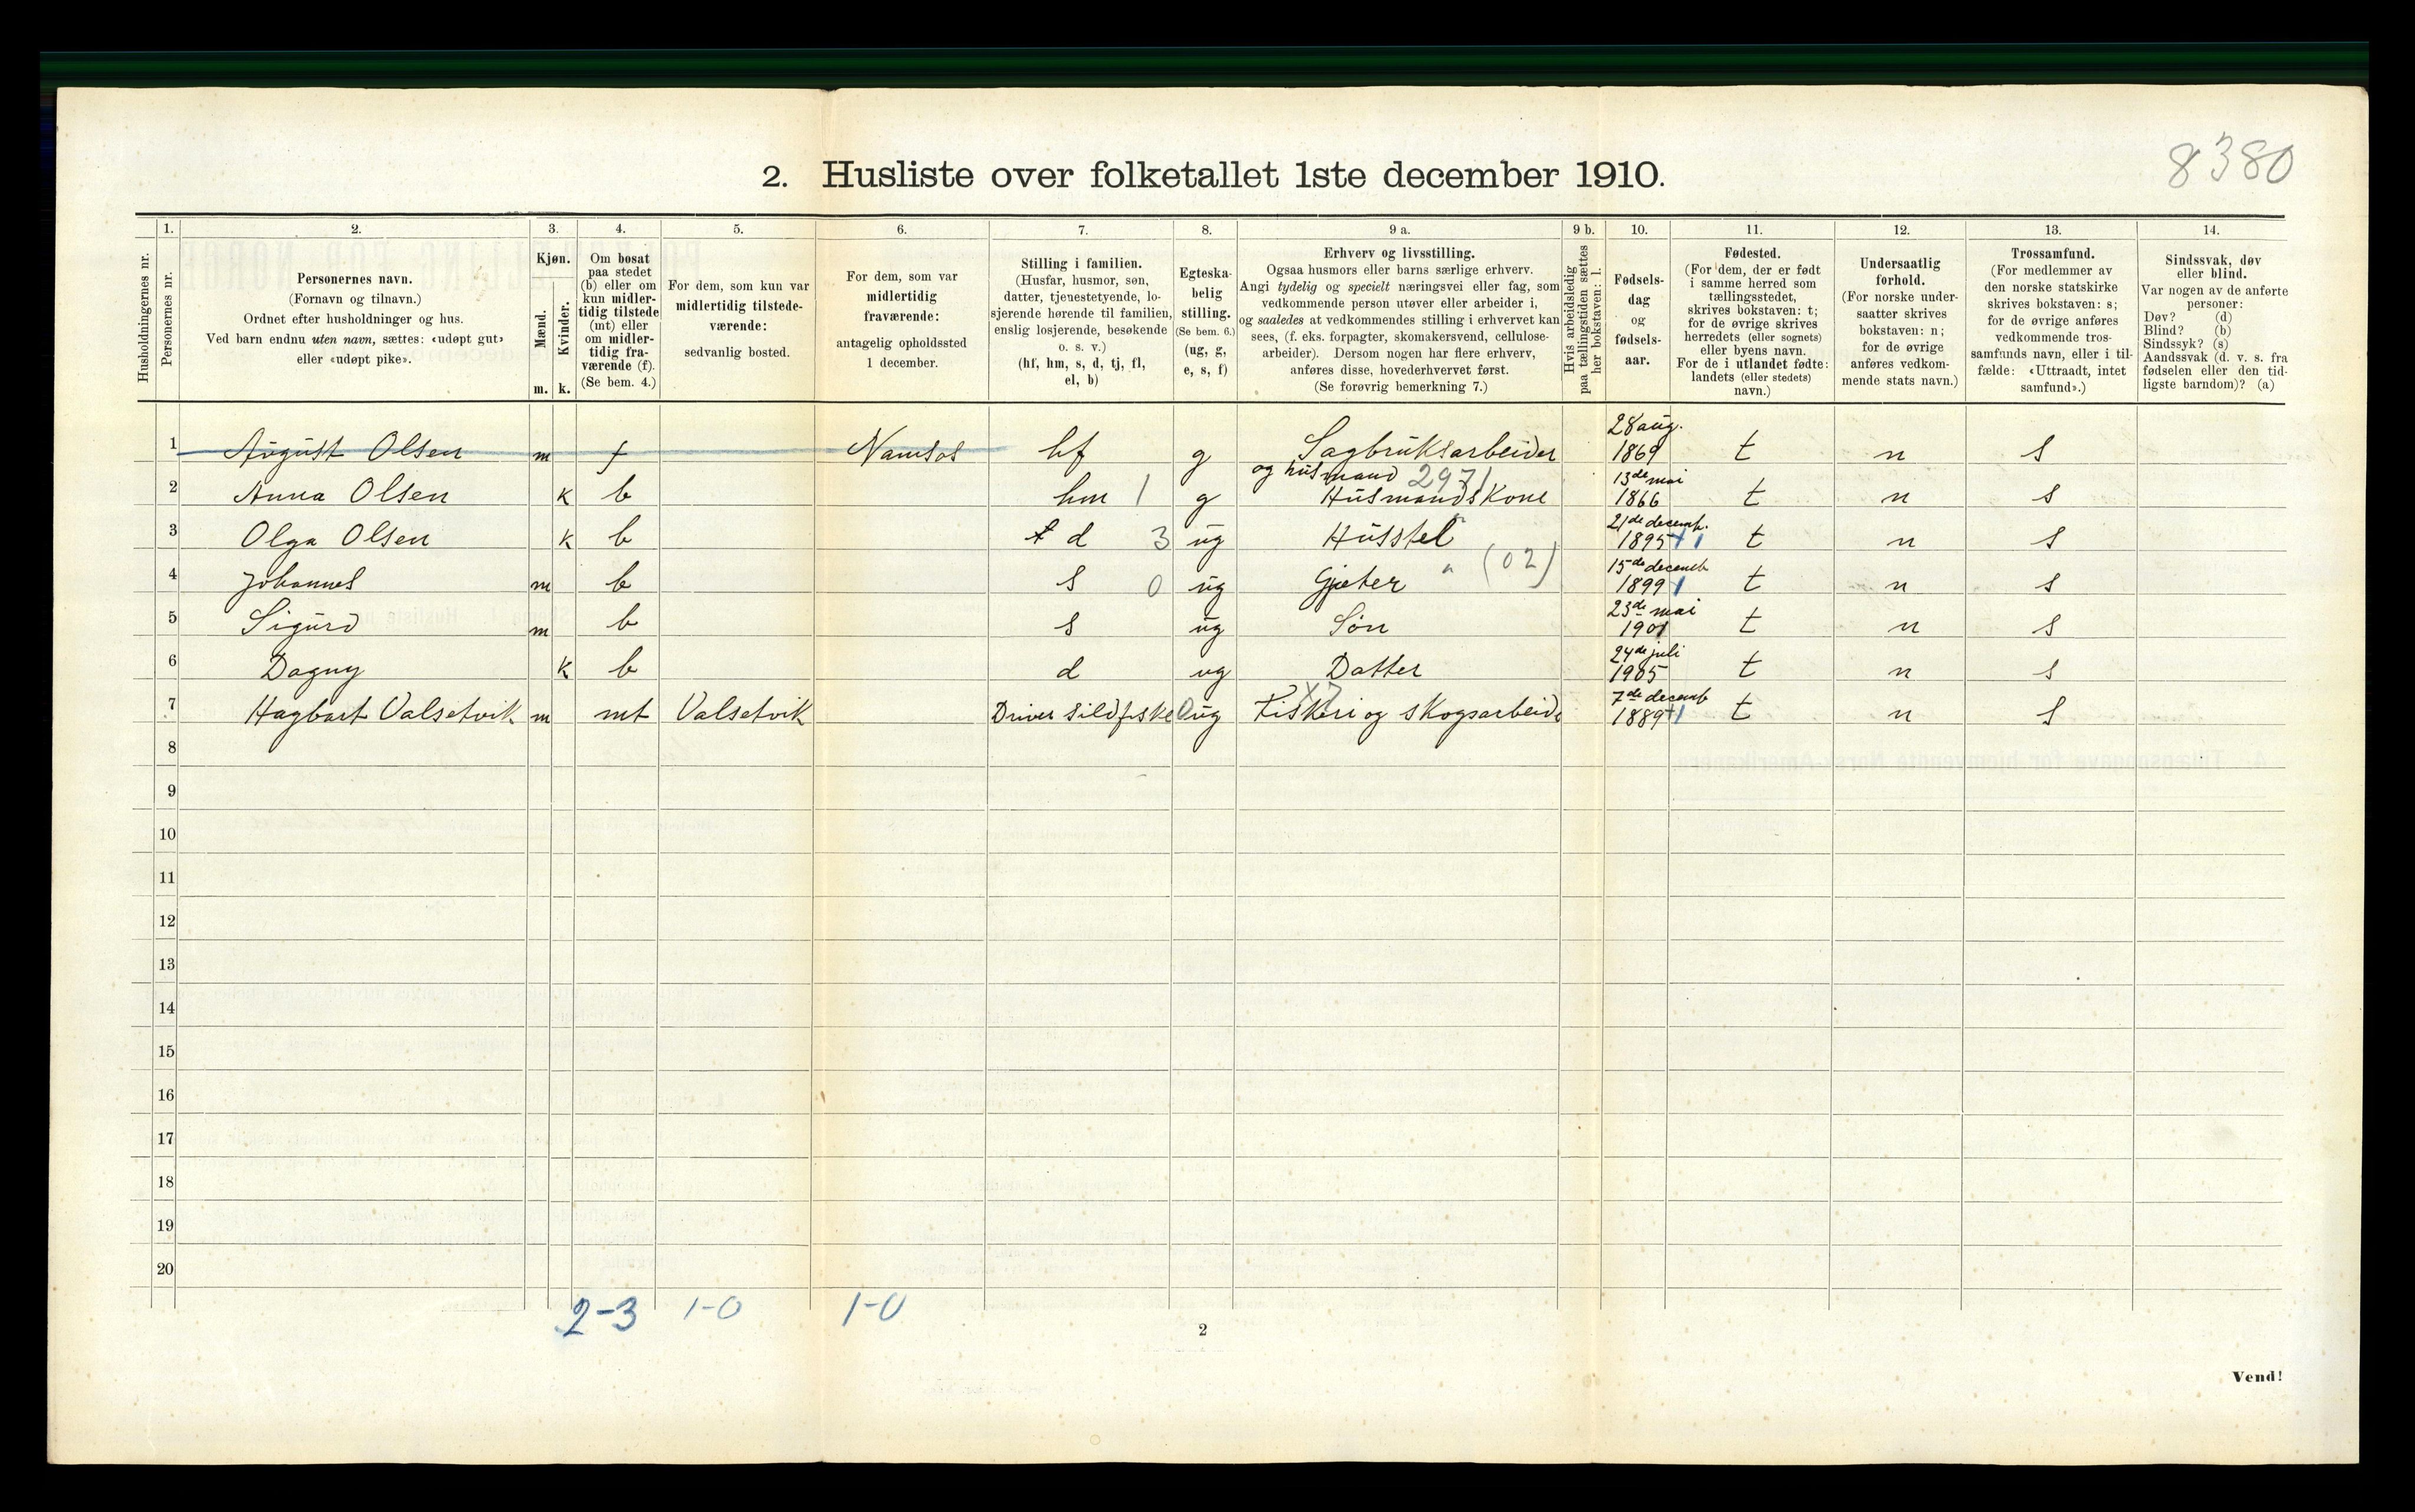 8380
2. Husliste over folketallet 1ste december 1910.
1. 2. 3. 4. 5. 6. 7. 8. 9 a. 9 b. 10. 11. 12. 13. 14.
Husholdningernes nr.
Personernes nr.
Personernes navn.
(Fornavn og tilnavn.)
Ordnet efter husholdninger og hus.
Ved barn endnu uten navn, sættes: «udøpt gut»
eller «udøpt pike».
Kjøn.
Mænd.
Kvinder.
m. k.
Om bosat
paa stedet
(b) eller om
kun midler-
tidig tilstede
(mt) eller
om midler-
tidig fra-
værende (f).
(Se bem. 4.)
For dem, som kun var
midlertidig tilstede-
værende:
sedvanlig bosted.
For dem, som var
midlertidig
fraværende:
antagelig opholdssted
1 december.
Stilling i familien.
(Husfar, husmor, søn,
datter, tjenestetyende, lo-
sjerende hørende til familien,
enslig losjerende, besøkende
o. s. v.)
(hf, hm, s, d, tj, fl,
el, b)
Egteska-
belig
stilling.
(Se bem. 6.)
(ug, g,
e, s, f)
Erhverv og livsstilling.
Ogsaa husmors eller barns særlige erhverv.
Angi tydelig og specielt næringsvei eller fag, som
vedkommende person utøver eller arbeider i,
og saaledes at vedkommendes stilling i erhvervet kan
sees, (f. eks. forpagter, skomakersvend, cellulose-
arbeider). Dersom nogen har flere erhverv,
anføres disse, hovederhvervet først.
(Se forøvrig bemerkning 7.)
Hvis arbeidsledig
paa tællingstiden sættes
her bokstaven: l.
Fødsels-
dag
og
fødsels-
aar.
Fødested.
(For dem, der er født
i samme herred som
tællingsstedet,
skrives bokstaven: t;
for de øvrige skrives
herredets (eller sognets)
eller byens navn.
For de i utlandet fødte:
landets (eller stedets)
navn.)
Undersaatlig
forhold.
(For norske under-
saatter skrives
bokstaven: n;
for de øvrige
anføres vedkom-
mende stats navn.)
Trossamfund.
(For medlemmer av
den norske statskirke
skrives bokstaven: s;
for de øvrige anføres
vedkommende tros-
samfunds navn, eller i til-
fælde: «Uttraadt, intet
samfund».)
Sindssvak, døv
eller blind.
Var nogen av de anførte
personer:
Døv? (d)
Blind? (b)
Sindssyk? (s)
Aandssvak (d. v. s. fra
fødselen eller den tid-
ligste barndom)? (a)
1 August Olsen m f Namsos hf g Sagbruksarbeider og husmand 2971 28 aug. 1869 t n s
2 Anna Olsen k b hm 1 g Husmandskone 13de mai 1866 t n s
3 Olga Olsen k b d 3 ug Husstel 21de decemb. 1895 t n s
4 Johannes m b s 0 ug Gjeter " (02) 15de decemb 1899 t n s
5 Sigurd m b s ug Søn 23de mai 1901 t n s
6 Dagny k b d ug Datter 24de juli 1905 t n s
7 Hagbart Valsetvik m mt Valsetvik Driver sildfiske 0 ug Fiskeri og skogsarbeide 7de decemb 1889 t n s
8
9
10
11
12
13
14
15
16
17
18
19
20
2-3 1-0 1-0
2
Vend!